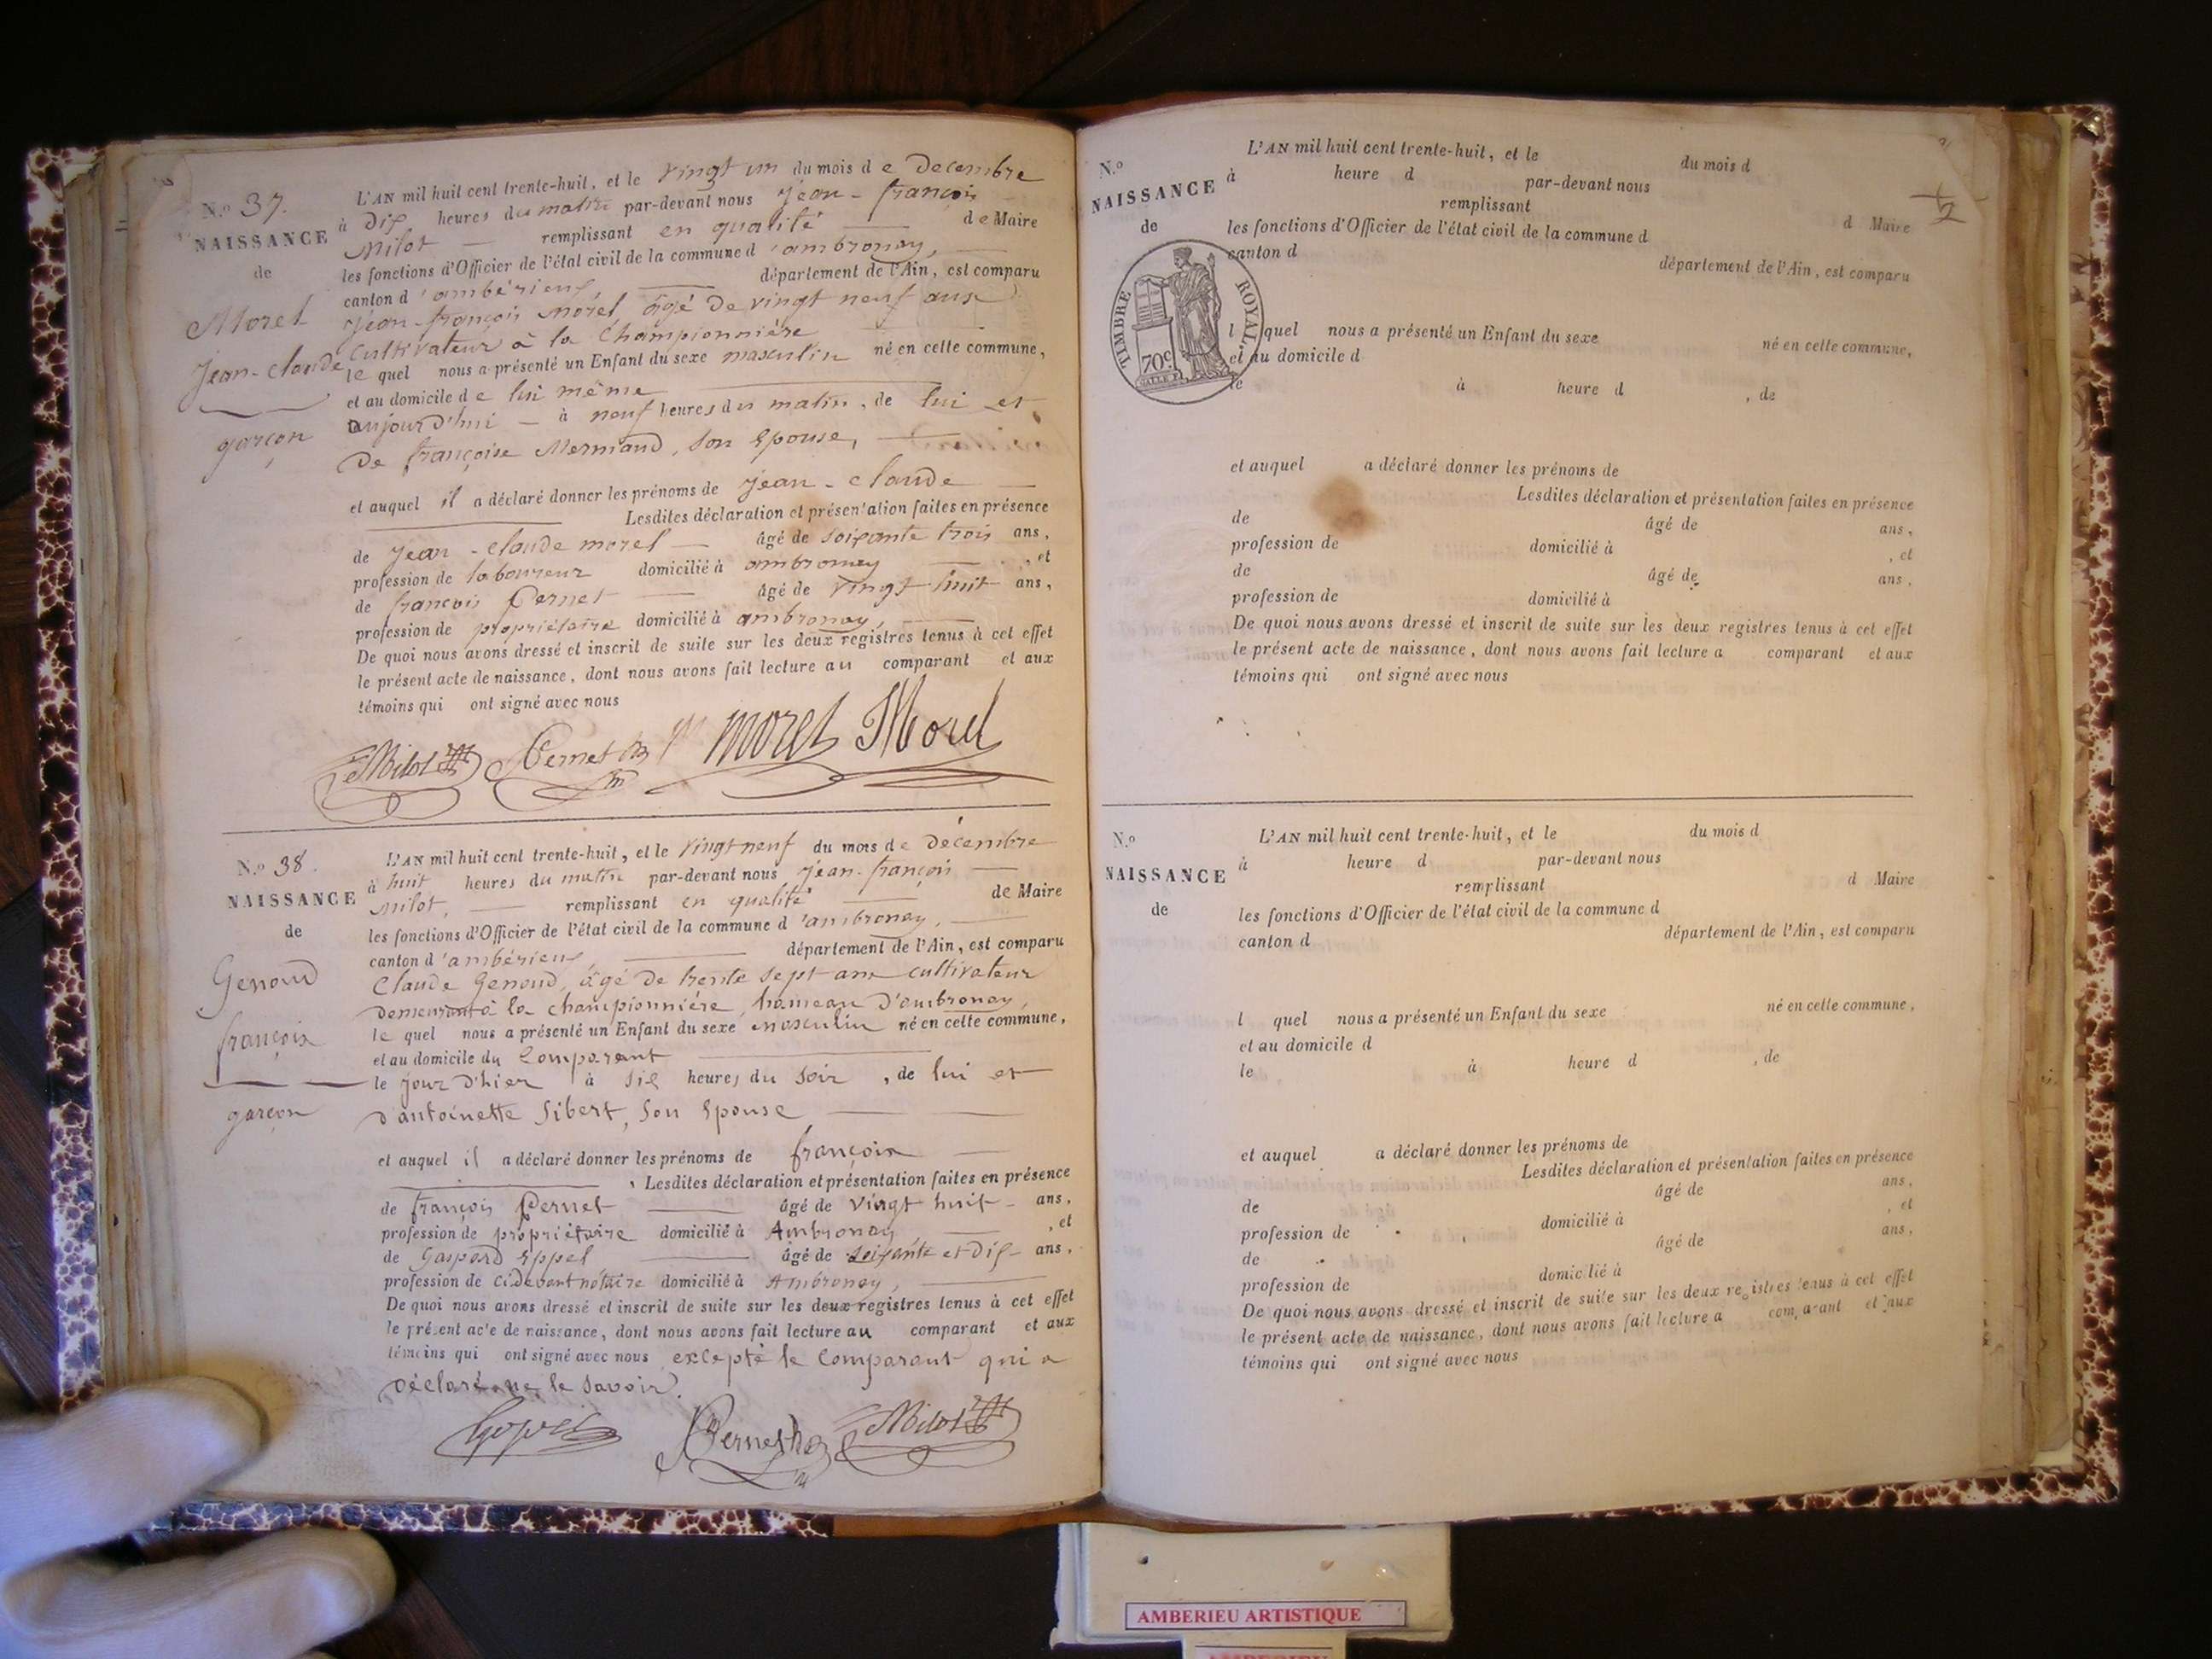 N.º 37.
NAISSANCE
de
Morel
Jean-claude
garçon
L'AN mil huit cent trente-huit, et le vingt un du mois de Decembre
à dix heures du matin par-devant nous Jean-françois
Milot — remplissant en qualité — de Maire
les fonctions d'Officier de l'état civil de la commune d'ambronay,
canton d'ambérieux, — département de l'Ain, est comparu
Jean-françois Morel, âgé de vingt neuf ans
Cultivateur à la Championnière
le quel nous a présenté un Enfant du sexe masculin né en cette commune,
et au domicile de lui même
aujourd'hui — à neuf heures du matin, de lui et
de françoise Mermand, son épouse, —
et auquel il a déclaré donner les prénoms de Jean-claude —
Lesdites déclaration et présentation faites en présence
de Jean-claude morel — âgé de soixante trois ans,
profession de laboureur domicilié à ambronay — , et
de françois Pernet — âgé de vingt huit ans,
profession de propriétaire domicilié à ambronay, —
De quoi nous avons dressé et inscrit de suite sur les deux registres tenus à cet effet
le présent acte de naissance, dont nous avons fait lecture au comparant et aux
témoins qui ont signé avec nous
Milot Pernet morel Morel
N.º 38.
NAISSANCE
de
Genoud
françois
garçon
L'AN mil huit cent trente-huit, et le vingt neuf du mois de décembre
à huit heures du matin par-devant nous Jean-françois —
Milot, — remplissant en qualité — de Maire
les fonctions d'Officier de l'état civil de la commune d'ambronay, —
canton d'ambérieux, — département de l'Ain, est comparu
Claude Genoud, âgé de trente sept ans cultivateur
demeurant à la championnière, hameau d'ambronay,
le quel nous a présenté un Enfant du sexe masculin né en cette commune,
et au domicile du Comparant —
le jour d'hier à six heures du soir, de lui et
d'antoinette Sibert, son épouse —
et auquel il a déclaré donner les prénoms de françois —
Lesdites déclaration et présentation faites en présence
de françois Pernet — âgé de vingt huit — ans,
profession de propriétaire domicilié à Ambronay — , et
de Gaspard Eppel — âgé de soixante et dix — ans,
profession de ci devant notaire domicilié à Ambronay, —
De quoi nous avons dressé et inscrit de suite sur les deux registres tenus à cet effet
le présent acte de naissance, dont nous avons fait lecture au comparant et aux
témoins qui ont signé avec nous excepté le Comparant qui a
déclaré ne le savoir.
Pernet Milot
N.º
NAISSANCE
de
TIMBRE ROYAL
70c
L'AN mil huit cent trente-huit, et le du mois d
à heure d par-devant nous
remplissant d Maire
les fonctions d'Officier de l'état civil de la commune d
canton d département de l'Ain, est comparu
l quel nous a présenté un Enfant du sexe né en cette commune,
et au domicile d
le à heure d , de
et auquel a déclaré donner les prénoms de
Lesdites déclaration et présentation faites en présence
de âgé de ans,
profession de domicilié à , et
de âgé de ans,
profession de domicilié à
De quoi nous avons dressé et inscrit de suite sur les deux registres tenus à cet effet
le présent acte de naissance, dont nous avons fait lecture a comparant et aux
témoins qui ont signé avec nous
N.º
NAISSANCE
de
L'AN mil huit cent trente-huit, et le du mois d
à heure d par-devant nous
remplissant d Maire
les fonctions d'Officier de l'état civil de la commune d
canton d département de l'Ain, est comparu
l quel nous a présenté un Enfant du sexe né en cette commune,
et au domicile d
le à heure d , de
et auquel a déclaré donner les prénoms de
Lesdites déclaration et présentation faites en présence
de âgé de ans,
profession de domicilié à , et
de âgé de ans,
profession de domicilié à
De quoi nous avons dressé et inscrit de suite sur les deux registres tenus à cet effet
le présent acte de naissance, dont nous avons fait lecture a comparant et aux
témoins qui ont signé avec nous
AMBERIEU ARTISTIQUE
AMBERIEU